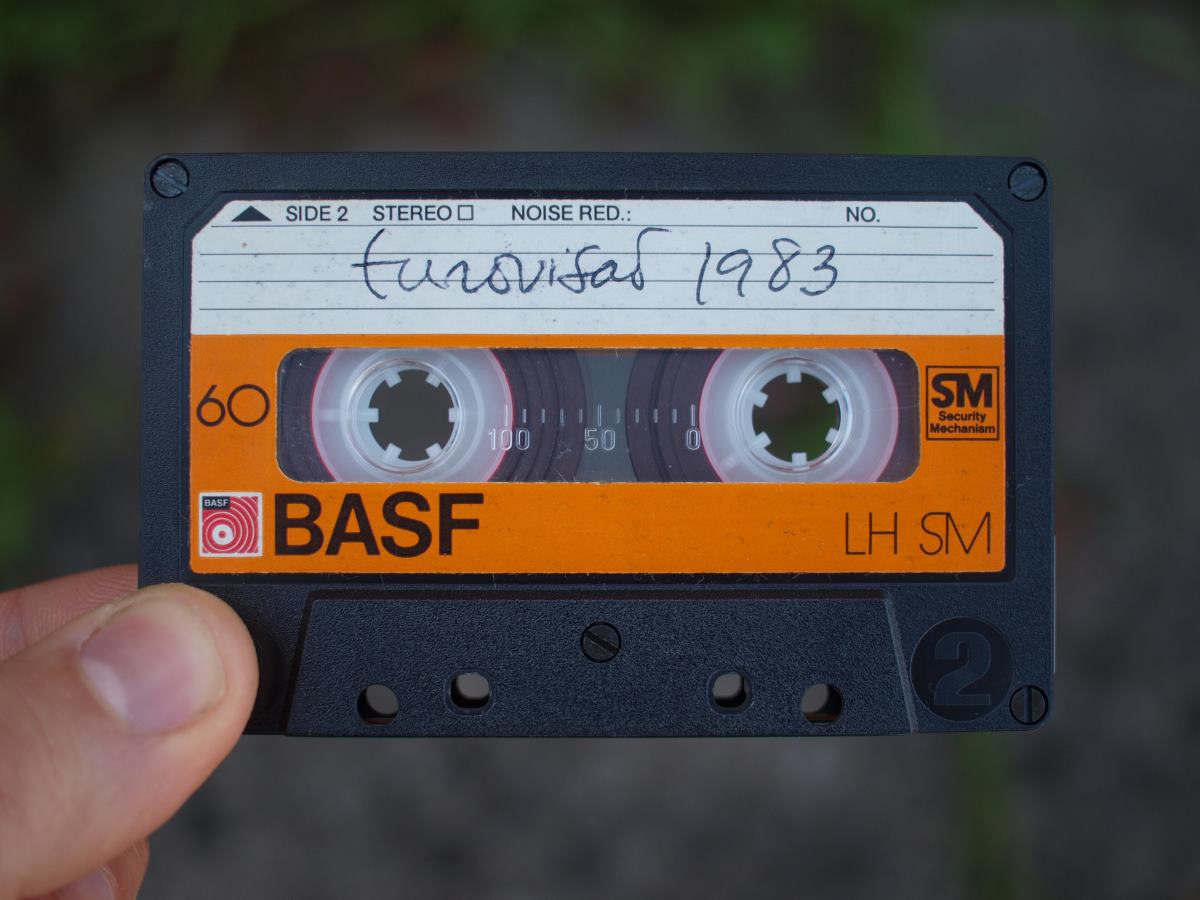 SIDE 2 STEREO NOISE RED.: NO.
Eurovisão 1983
60
SM
Security
Mechanism
100 50 0
BASF
BASF
LH SM
2